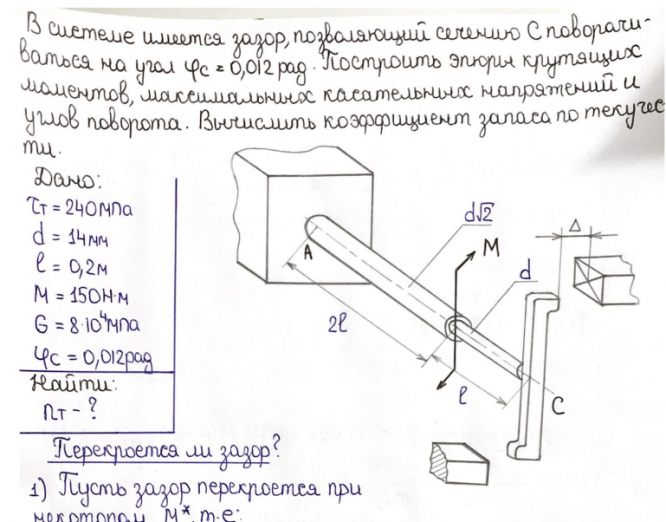 В системе имеется зазор, позволяющий сечению С поворачи-
ваться на угол φс = 0,012 рад. Построить эпюры крутящих
моментов, максимальных касательных напряжений и
углов поворота. Вычислить коэффициент запаса по текучес-
ти.
Дано:
τт = 240МПа
d = 14мм
ℓ = 0,2м
М = 150Н·м
G = 8·10⁴МПа
φс = 0,012рад
Найти:
nт - ?
A
2ℓ
d√2
M
d
ℓ
Δ
C
Перекроется ли зазор?
1) Пусть зазор перекроется при
некотором М*, т.е: